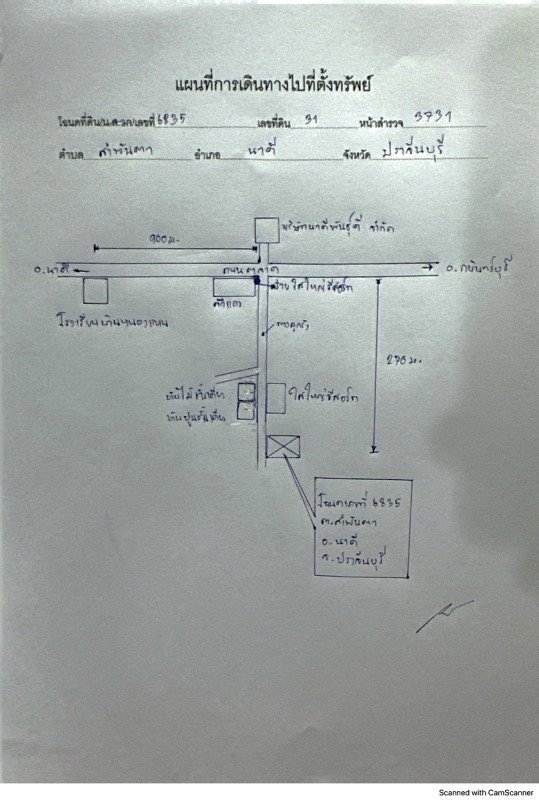 แผนที่การเดินทางไปที่ตั้งทรัพย์
โฉนดที่ดิน/น.ส.๓ก/เลขที่ 6835 เลขที่ดิน 31 หน้าสำรวจ 3731
ตำบล สำพันตา อำเภอ นาดี จังหวัด ปราจีนบุรี
บริษัทนาดีพันธุ์ดี จำกัด
900 ม.
อ.นาดี
ถนนลาดยาง
อ.กบินทร์บุรี
ป้ายใสใหญ่รีสอร์ท
ทางลูกรัง
270 ม.
บ้านไม้ชั้นเดียว
บ้านปูนชั้นเดียว
ใสใหญ่รีสอร์ท
โฉนดเลขที่ 6835
ต.สำพันตา
อ.นาดี
จ.ปราจีนบุรี
Scanned with CamScanner